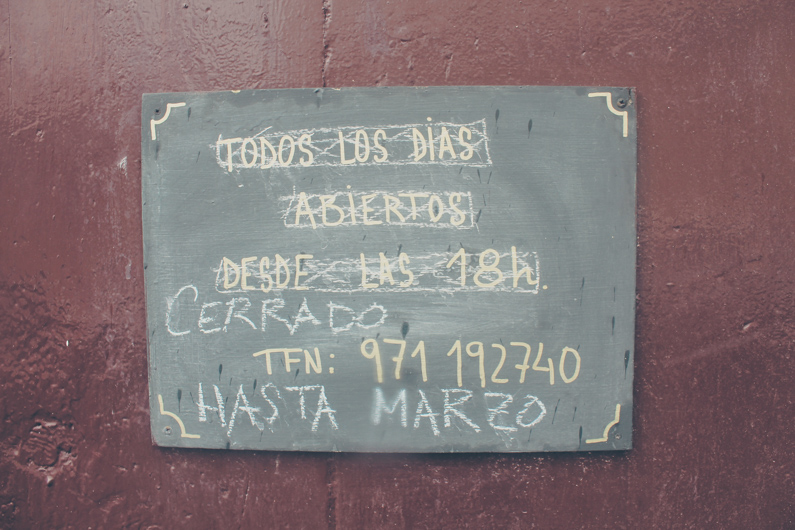 TODOS LOS DÍAS
ABIERTOS
DESDE LAS 18h.
CERRADO
TFN: 971 192740
HASTA MARZO